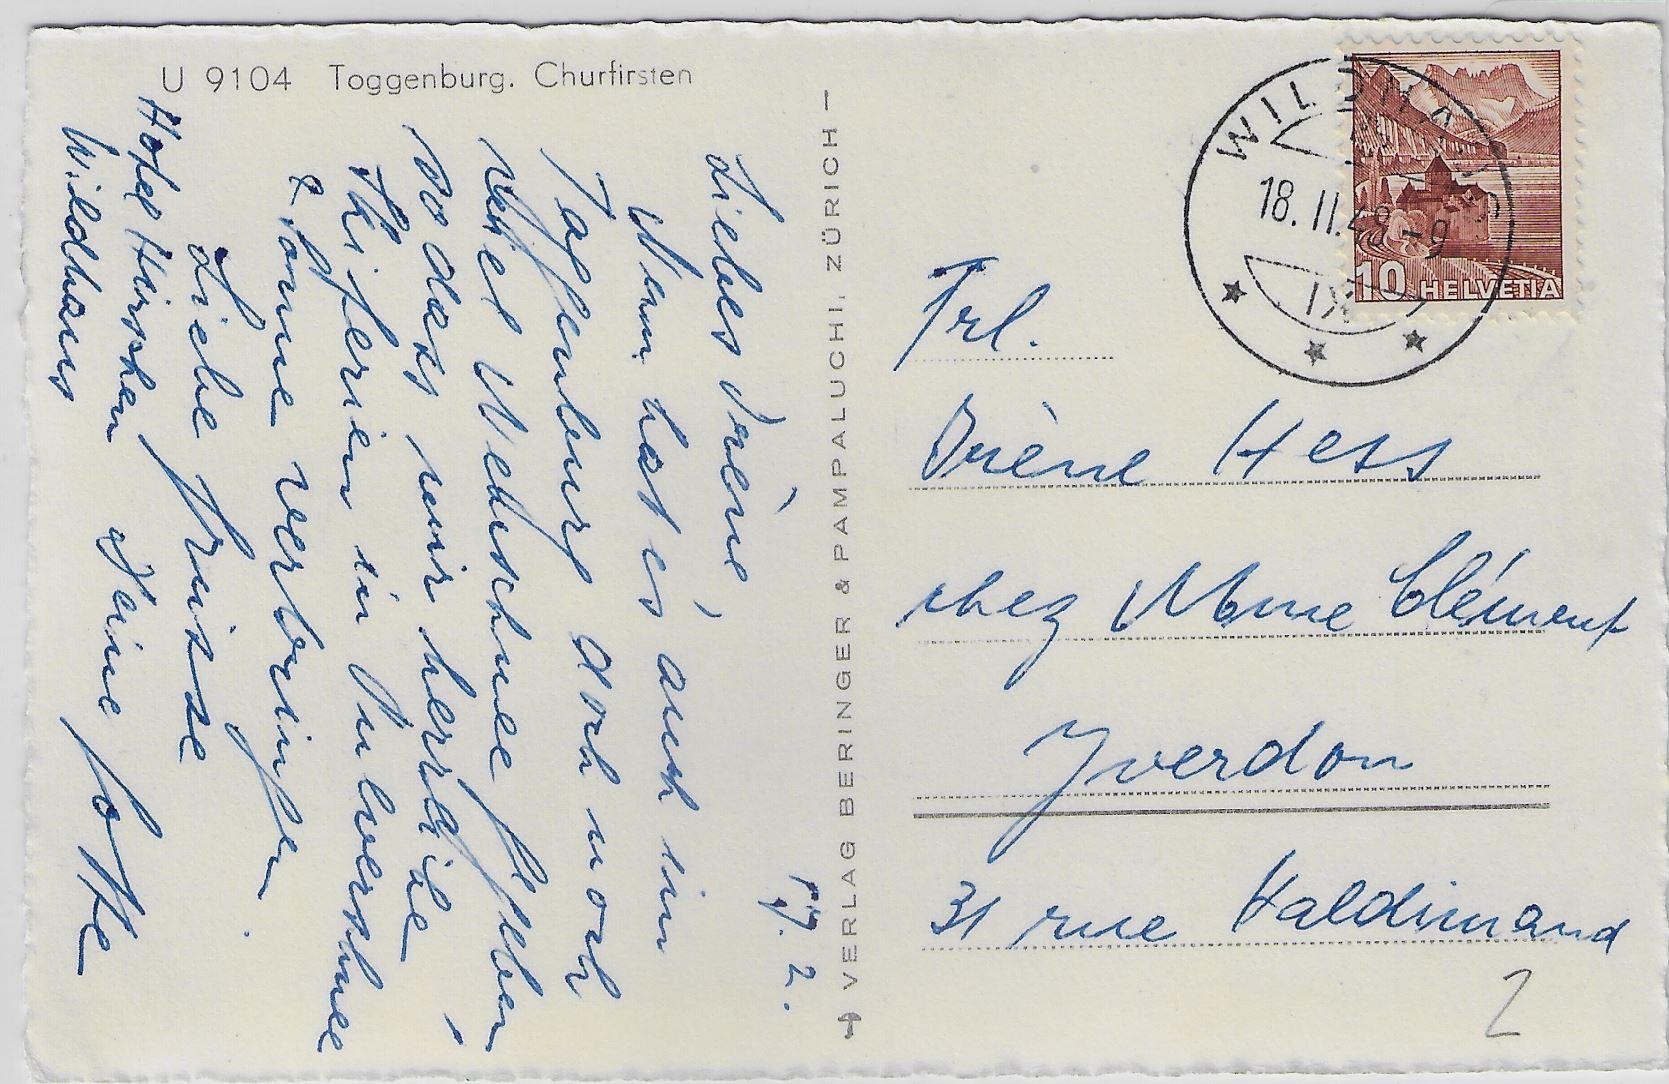 U 9104 Toggenburg. Churfirsten
17. 2.
Liebes Irène,
Nun hat es auch im
Toggenburg doch noch
Neuschnee gegeben,
sodass wir herrliche
Skiferien in Pulverschnee
& Sonne verbringen.
Liebe Grüsse
Deine Gotte
Hotel Hirschen
Wildhaus
VERLAG BERINGER & PAMPALUCHI, ZÜRICH
WILDHAUS
18. II. 48 - 9
IX
10 HELVETIA
Frl.
Irène Hess
chez Mme Clément
Yverdon
31 rue Haldimand
2